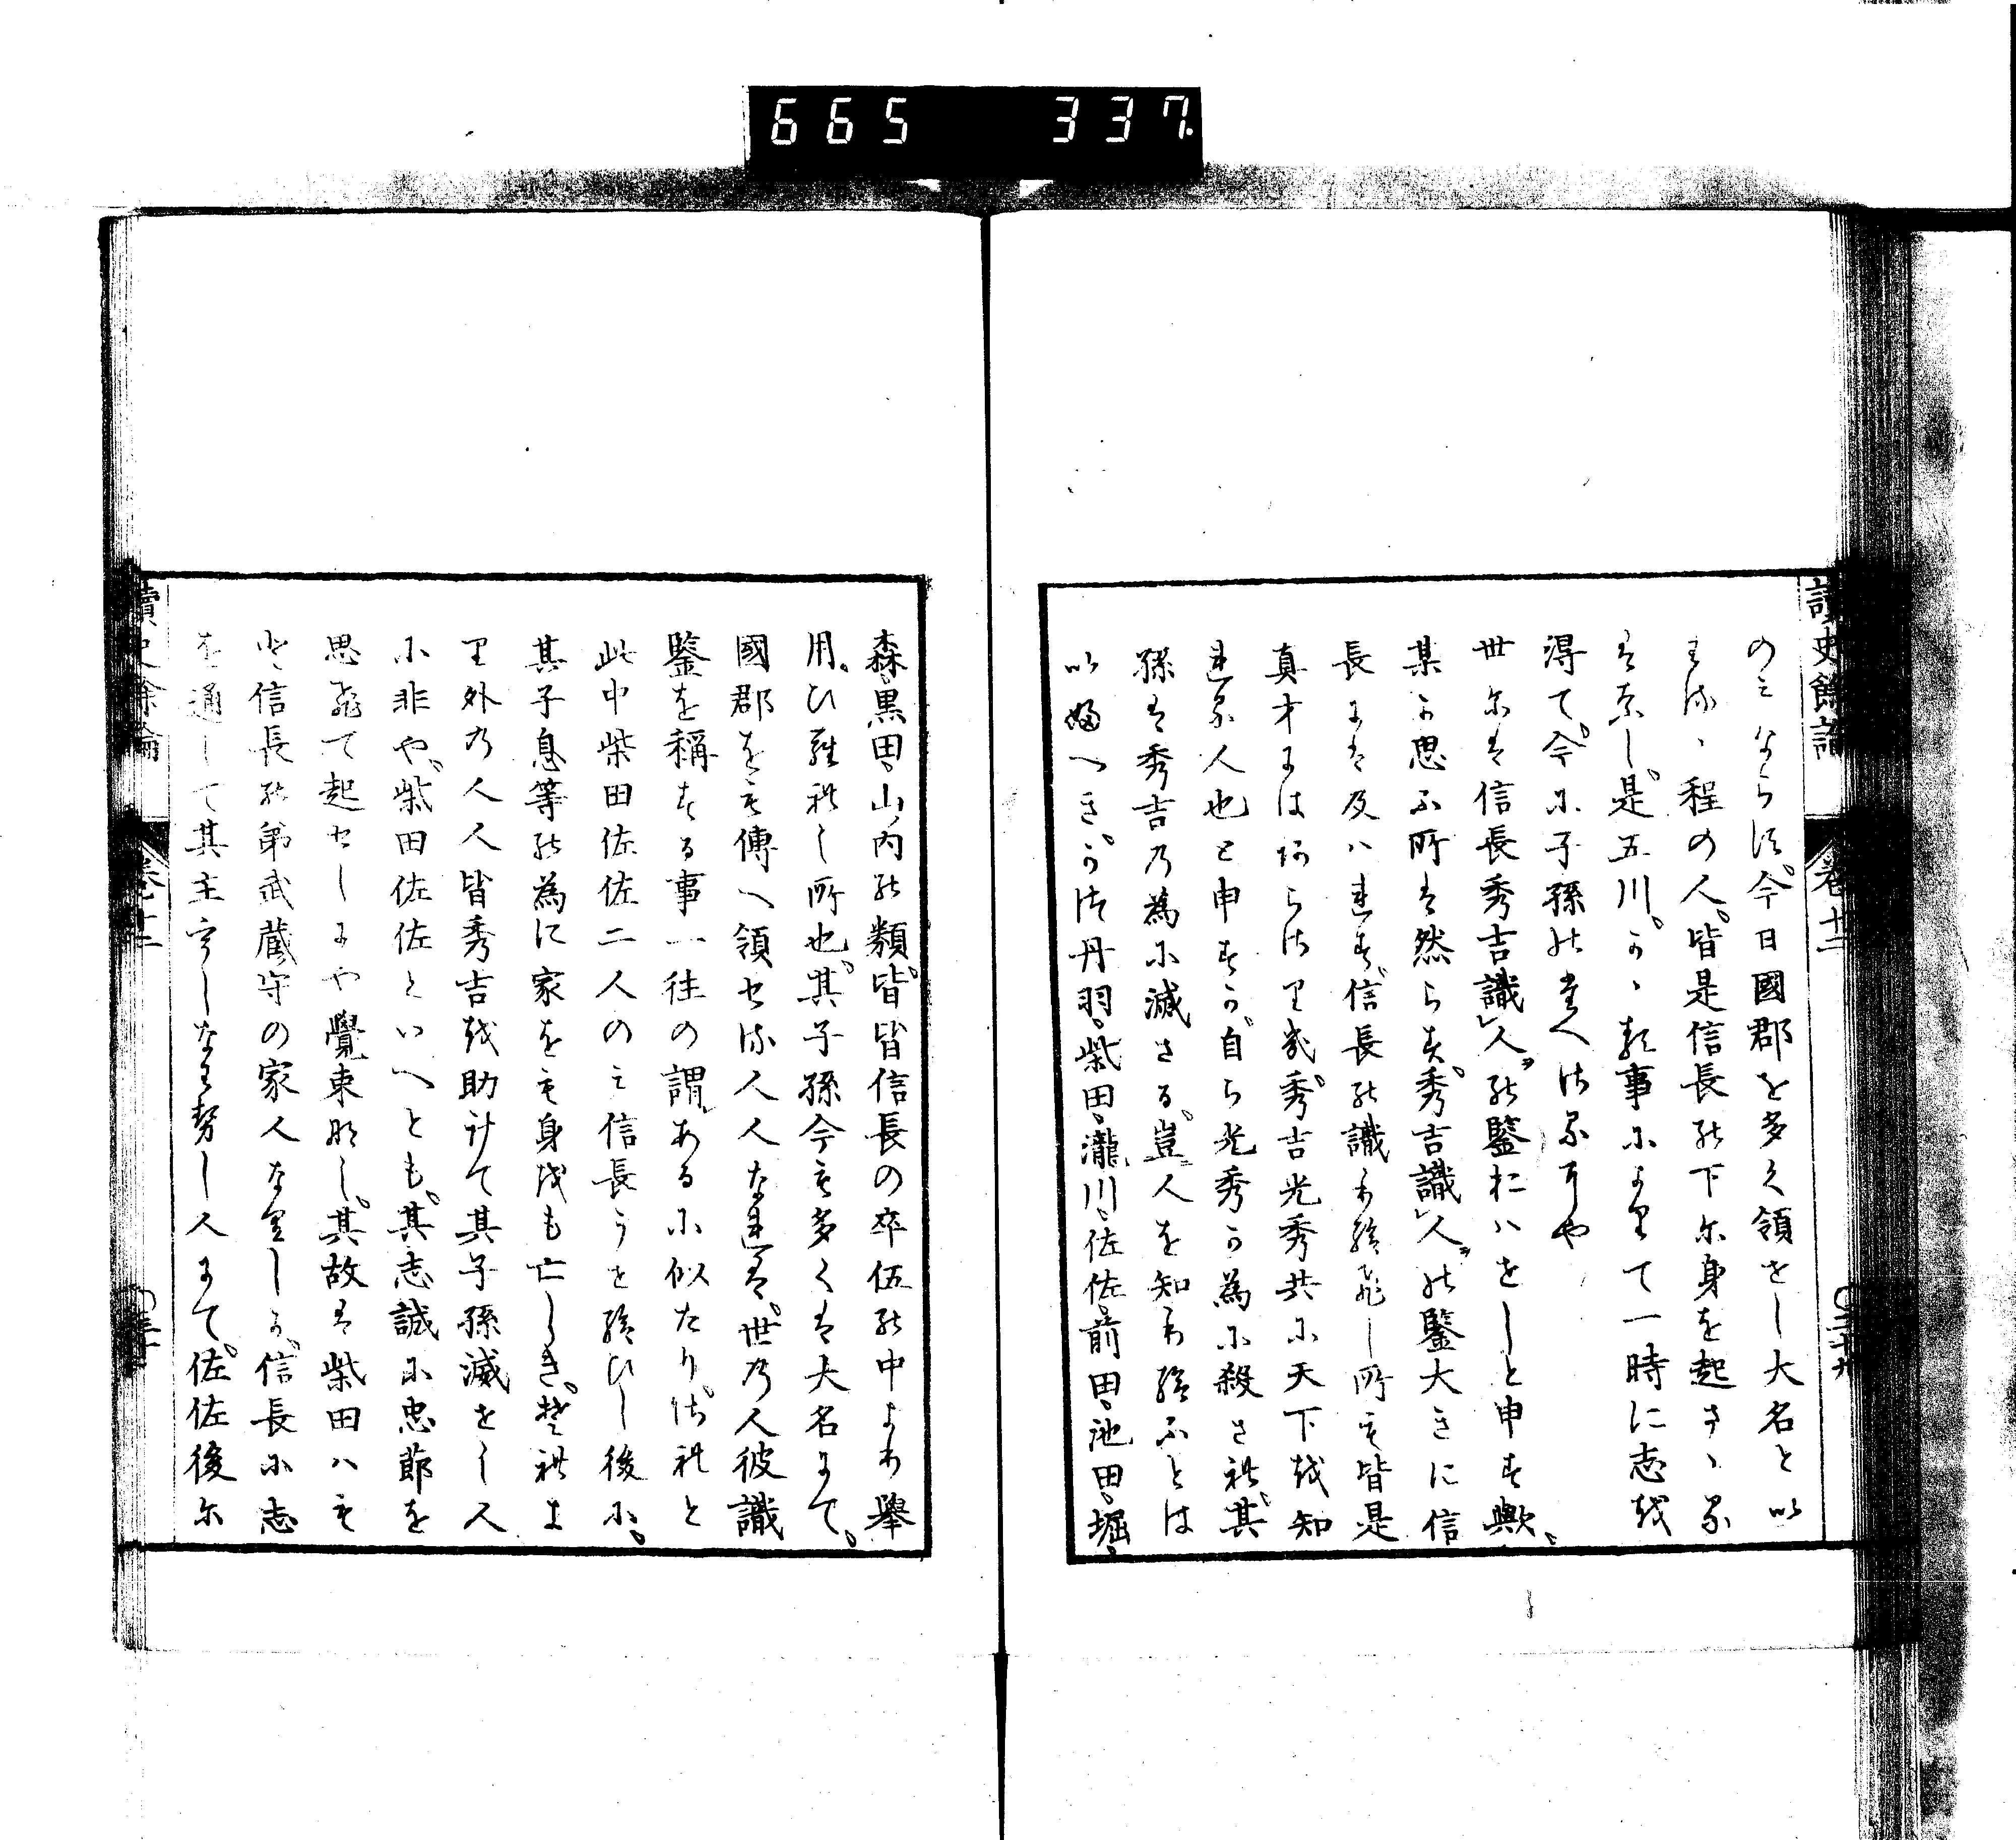 665 337
讀史餘論 卷十二
のミならす。今日國郡を多く領せし大名と以
はるゝ程の人。皆是信長の下尓身を起さゝる
ハなし。是五川。かゝ類事によりて一時に志越
得て。今に子孫の榮へける耳や
世尓は信長秀吉識レ人ヲの鑒おハせしと申す歟。
某か思ふ所は然らす。秀吉識レ人ヲの鑒大きに信
長には及ハれす。信長の識り給飛し所も皆是
真才にはあらさりき。秀吉光秀共に天下越知
れる人也と申すか。自ら光秀か為に殺され。其
孫は秀吉乃為に滅さる。豈人を知り給ふとは
以ふへき。かつ丹羽、柴田、瀧川、佐佐、前田、池田、堀、
森、黒田、山内の類。皆皆信長の卒伍の中より擧
用。ひられし所也。其子孫今も多くは大名にて。
國郡をも傳へ領せる人人なれは。世乃人彼識
鑒を稱する事一往の謂あるに似たり。されと
此中柴田佐佐二人のミ信長うせ給ひし後に。
其子息等の為に家をも身越も亡しき。それよ
り外乃人人皆秀吉越助けて其子孫滅せし人
に非や。柴田佐佐といへとも。其志誠に忠節を
思飛て起せしにや覺束那し。其故は柴田ハも
と信長の弟武蔵守の家人なりしか。信長に志
を通して其主亡しなり勢し人にて。佐佐後尓
讀史餘論 卷十二